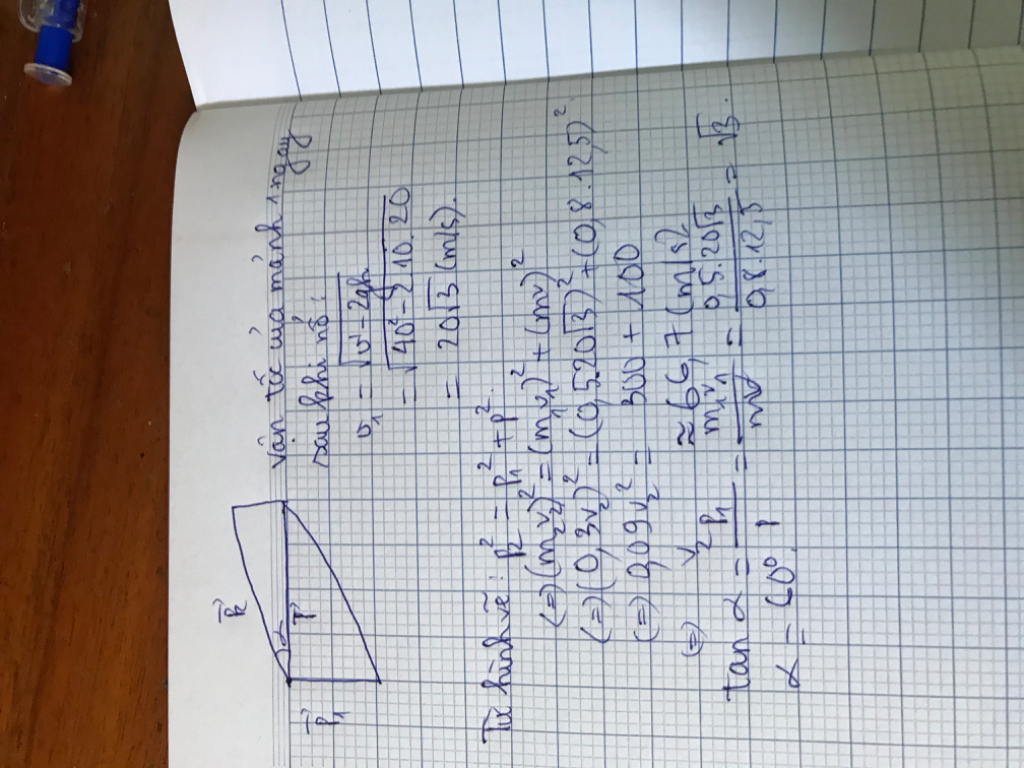 p₂
α
p
p₁
Vận tốc của mảnh 1 ngay
sau khi nổ:
v₁ = √(v'² - 2gh)
= √(40² - 2.10.20)
= 20√3 (m/s).
Từ hình vẽ: p₂² = p₁² + p²
(=) (m₂v₂)² = (m₁v₁)² + (mv)²
(=) (0,3v₂)² = (0,5.20√3)² + (0,8.12,5)²
(=) 0,09v₂² = 300 + 100
(=) v₂ ≈ 66,7 (m/s)
tan α = p₁/p = m₁v₁/mv = 0,5.20√3/0,8.12,5 = √3.
α = 60°!